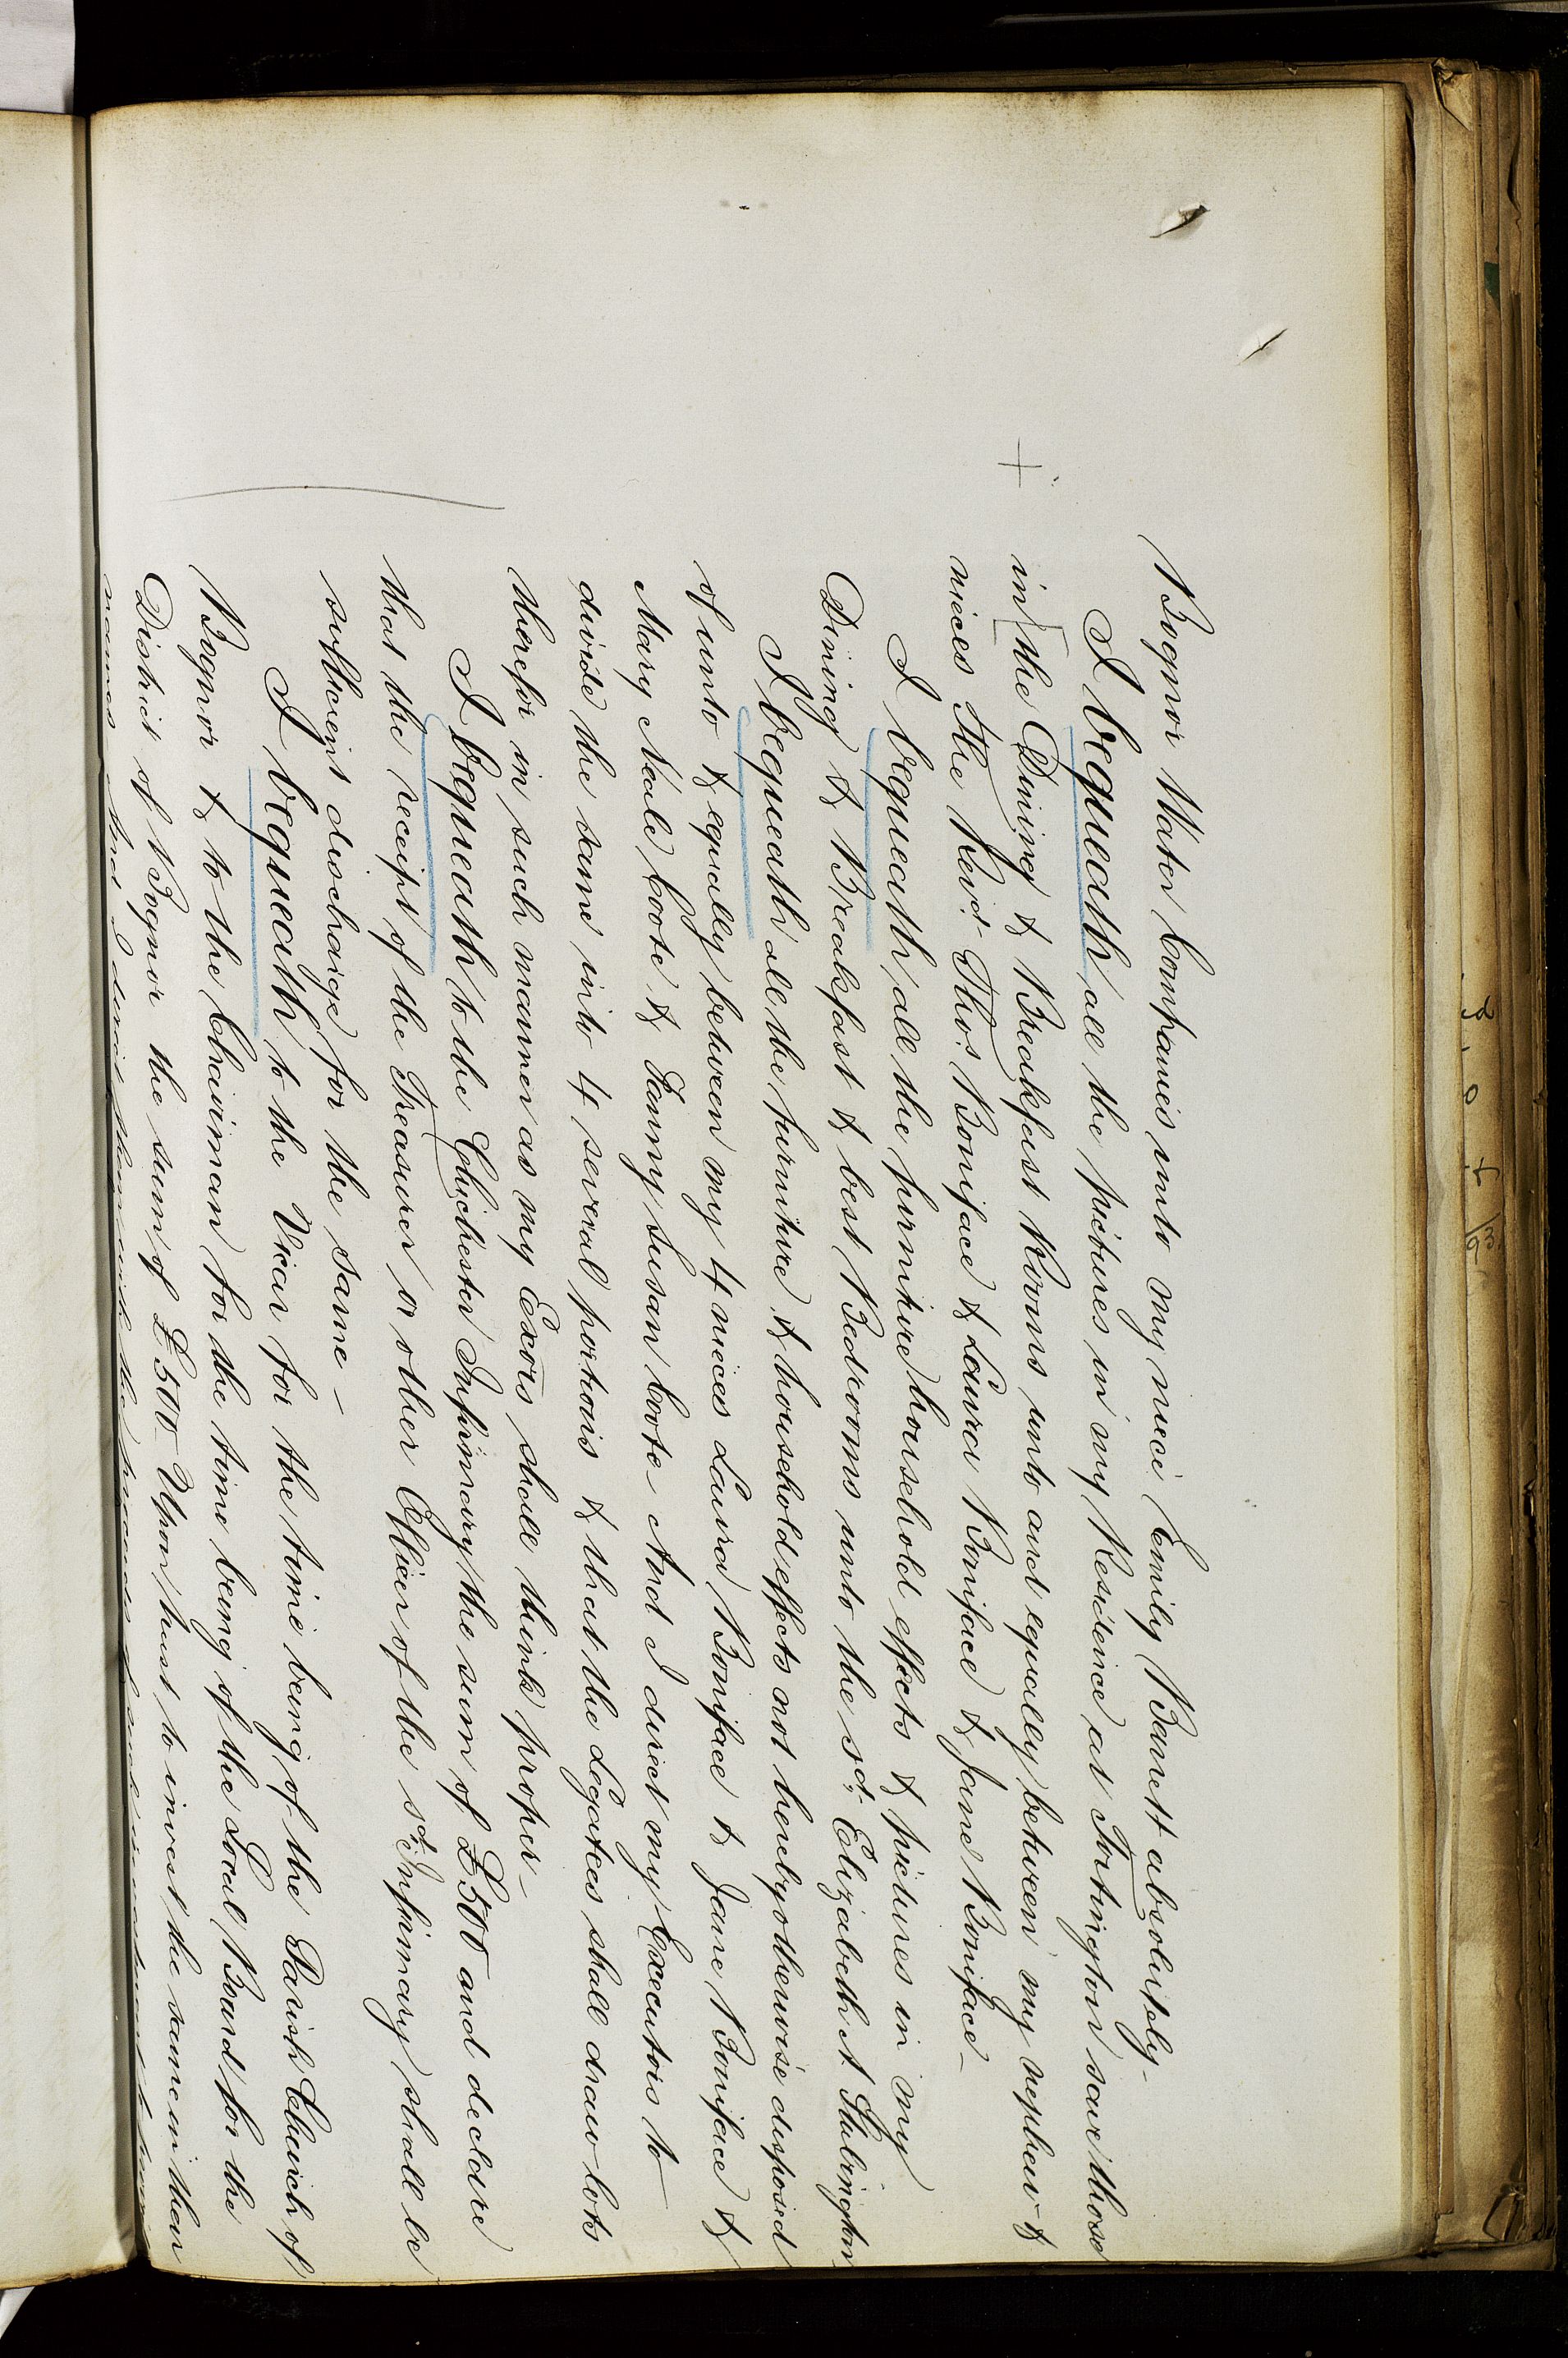 Bognor Water Companies unto my niece Emily Barrett absolutely -
I bequeath all the pictures in my Residence at Tortington save those
in [the Dining & Breakfast Rooms unto and equally between my nephew &
nieces The Revd. Thos. Boniface & Laura Boniface & Jane Boniface -
I bequeath all the furniture household effects & pictures in my
Dining & Breakfast & best Bedrooms unto the sd. Elizabeth A Stubington
I bequeath all the furniture & household effects not hereby otherwise disposed
of unto & equally between my 4 nieces Laura Boniface & Jane Boniface &
Mary Neale Coote & Fanny Susan Coote - And I direct my Executors to
divide the same into 4 several portions & that the Legatees shall draw lots
therefor in such manner as my Exors shall think proper -
I bequeath to the Chichester Infirmary the sum of £500 and declare
that the receipt of the Treasurer or other Officer of the sd. Infirmary shall be
sufficient discharge for the same -
I bequeath to the Vicar for the time being of the Parish Church of
Bognor & to the Chairman for the time being of the Local Board for the
District of Bognor the sum of £500 Upon trust to invest the same in their
names And I direct them with the